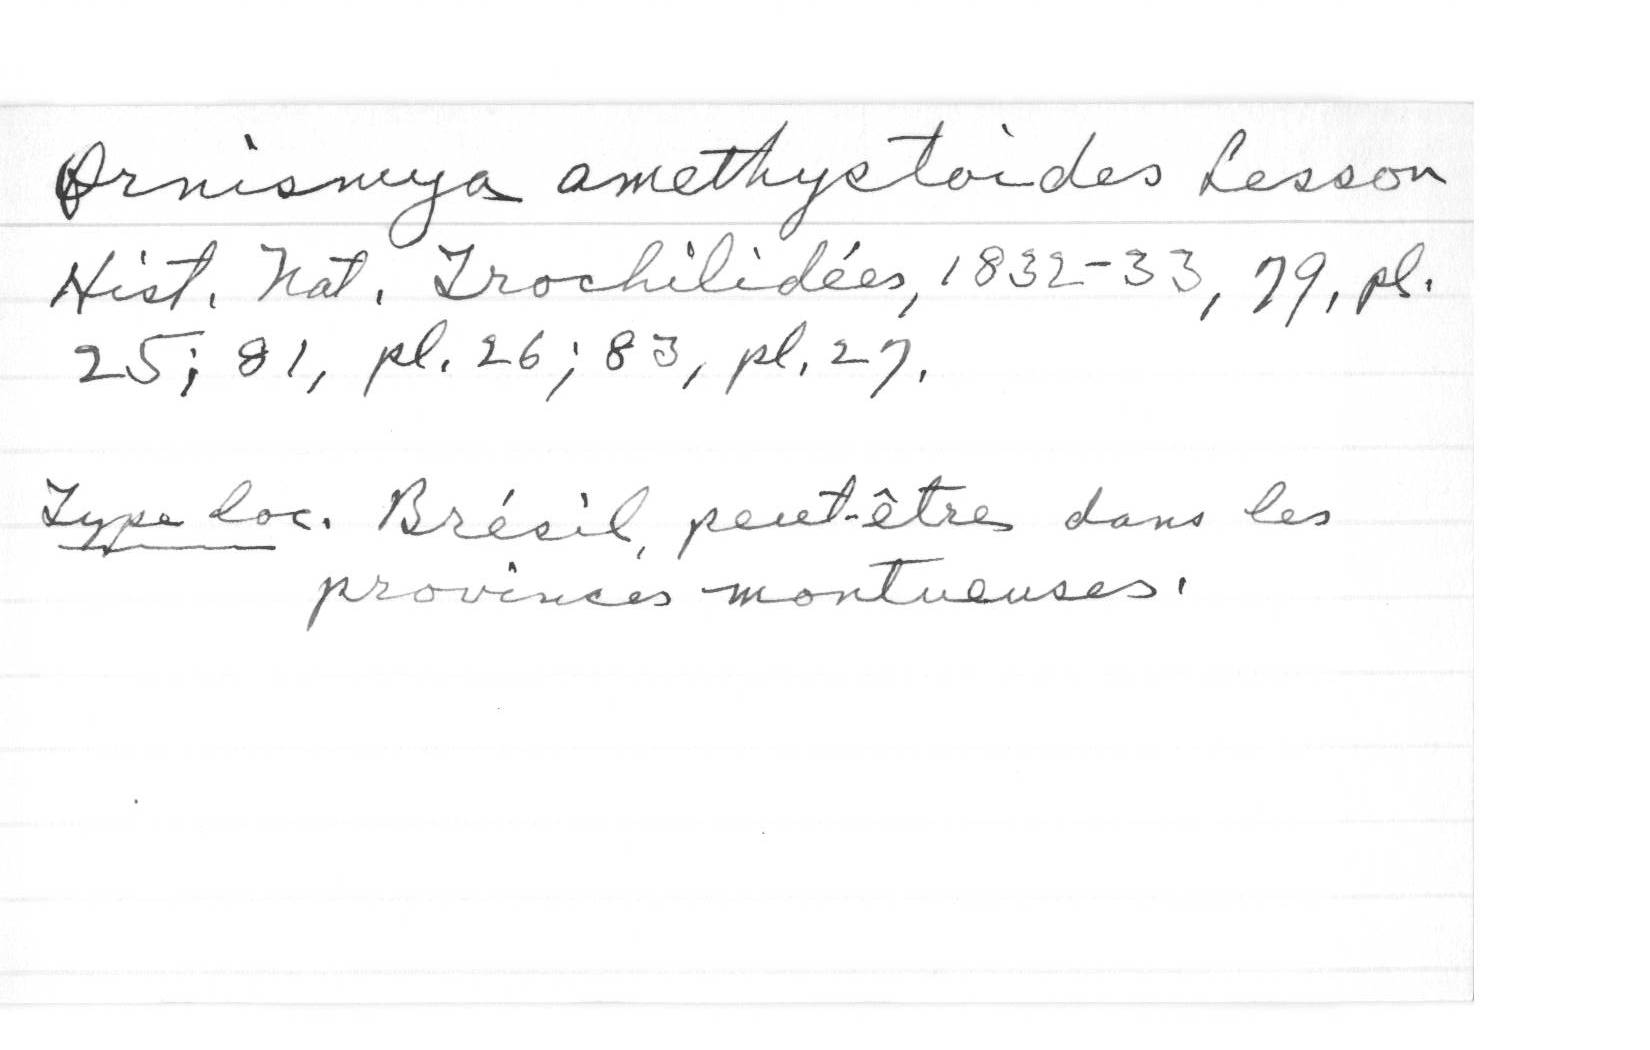 Ornismya amethystoides Lesson
Hist. Nat. Trochilidées, 1832-33, 79, pl.
25; 81, pl. 26; 83, pl. 27.
Type loc. Brésil, peut-être dans les
provinces montueuses.